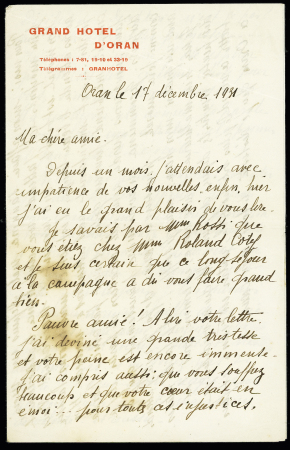 GRAND HOTEL
D'ORAN
Téléphones : 7-51, 15-15 et 23-15
Télégrammes : GRANHOTEL
Oran le 17 décembre 1931
Ma chère amie.
Depuis un mois, j'attendais avec
impatience de vos nouvelles, enfin, hier
j'ai eu le grand plaisir de vous lire.
Je savais par Mme Rossi que
vous étiez chez Mme Roland Coty
et je suis certain que ce long séjour
à la campagne a dû vous faire grand
bien.
Pauvre amie! A lire votre lettre
j'ai deviné une grande tristesse
et votre peine est encore immense.
J'ai compris aussi: que vous souffrez
beaucoup et que votre cœur était en
émoi... pour toutes ces injustices.